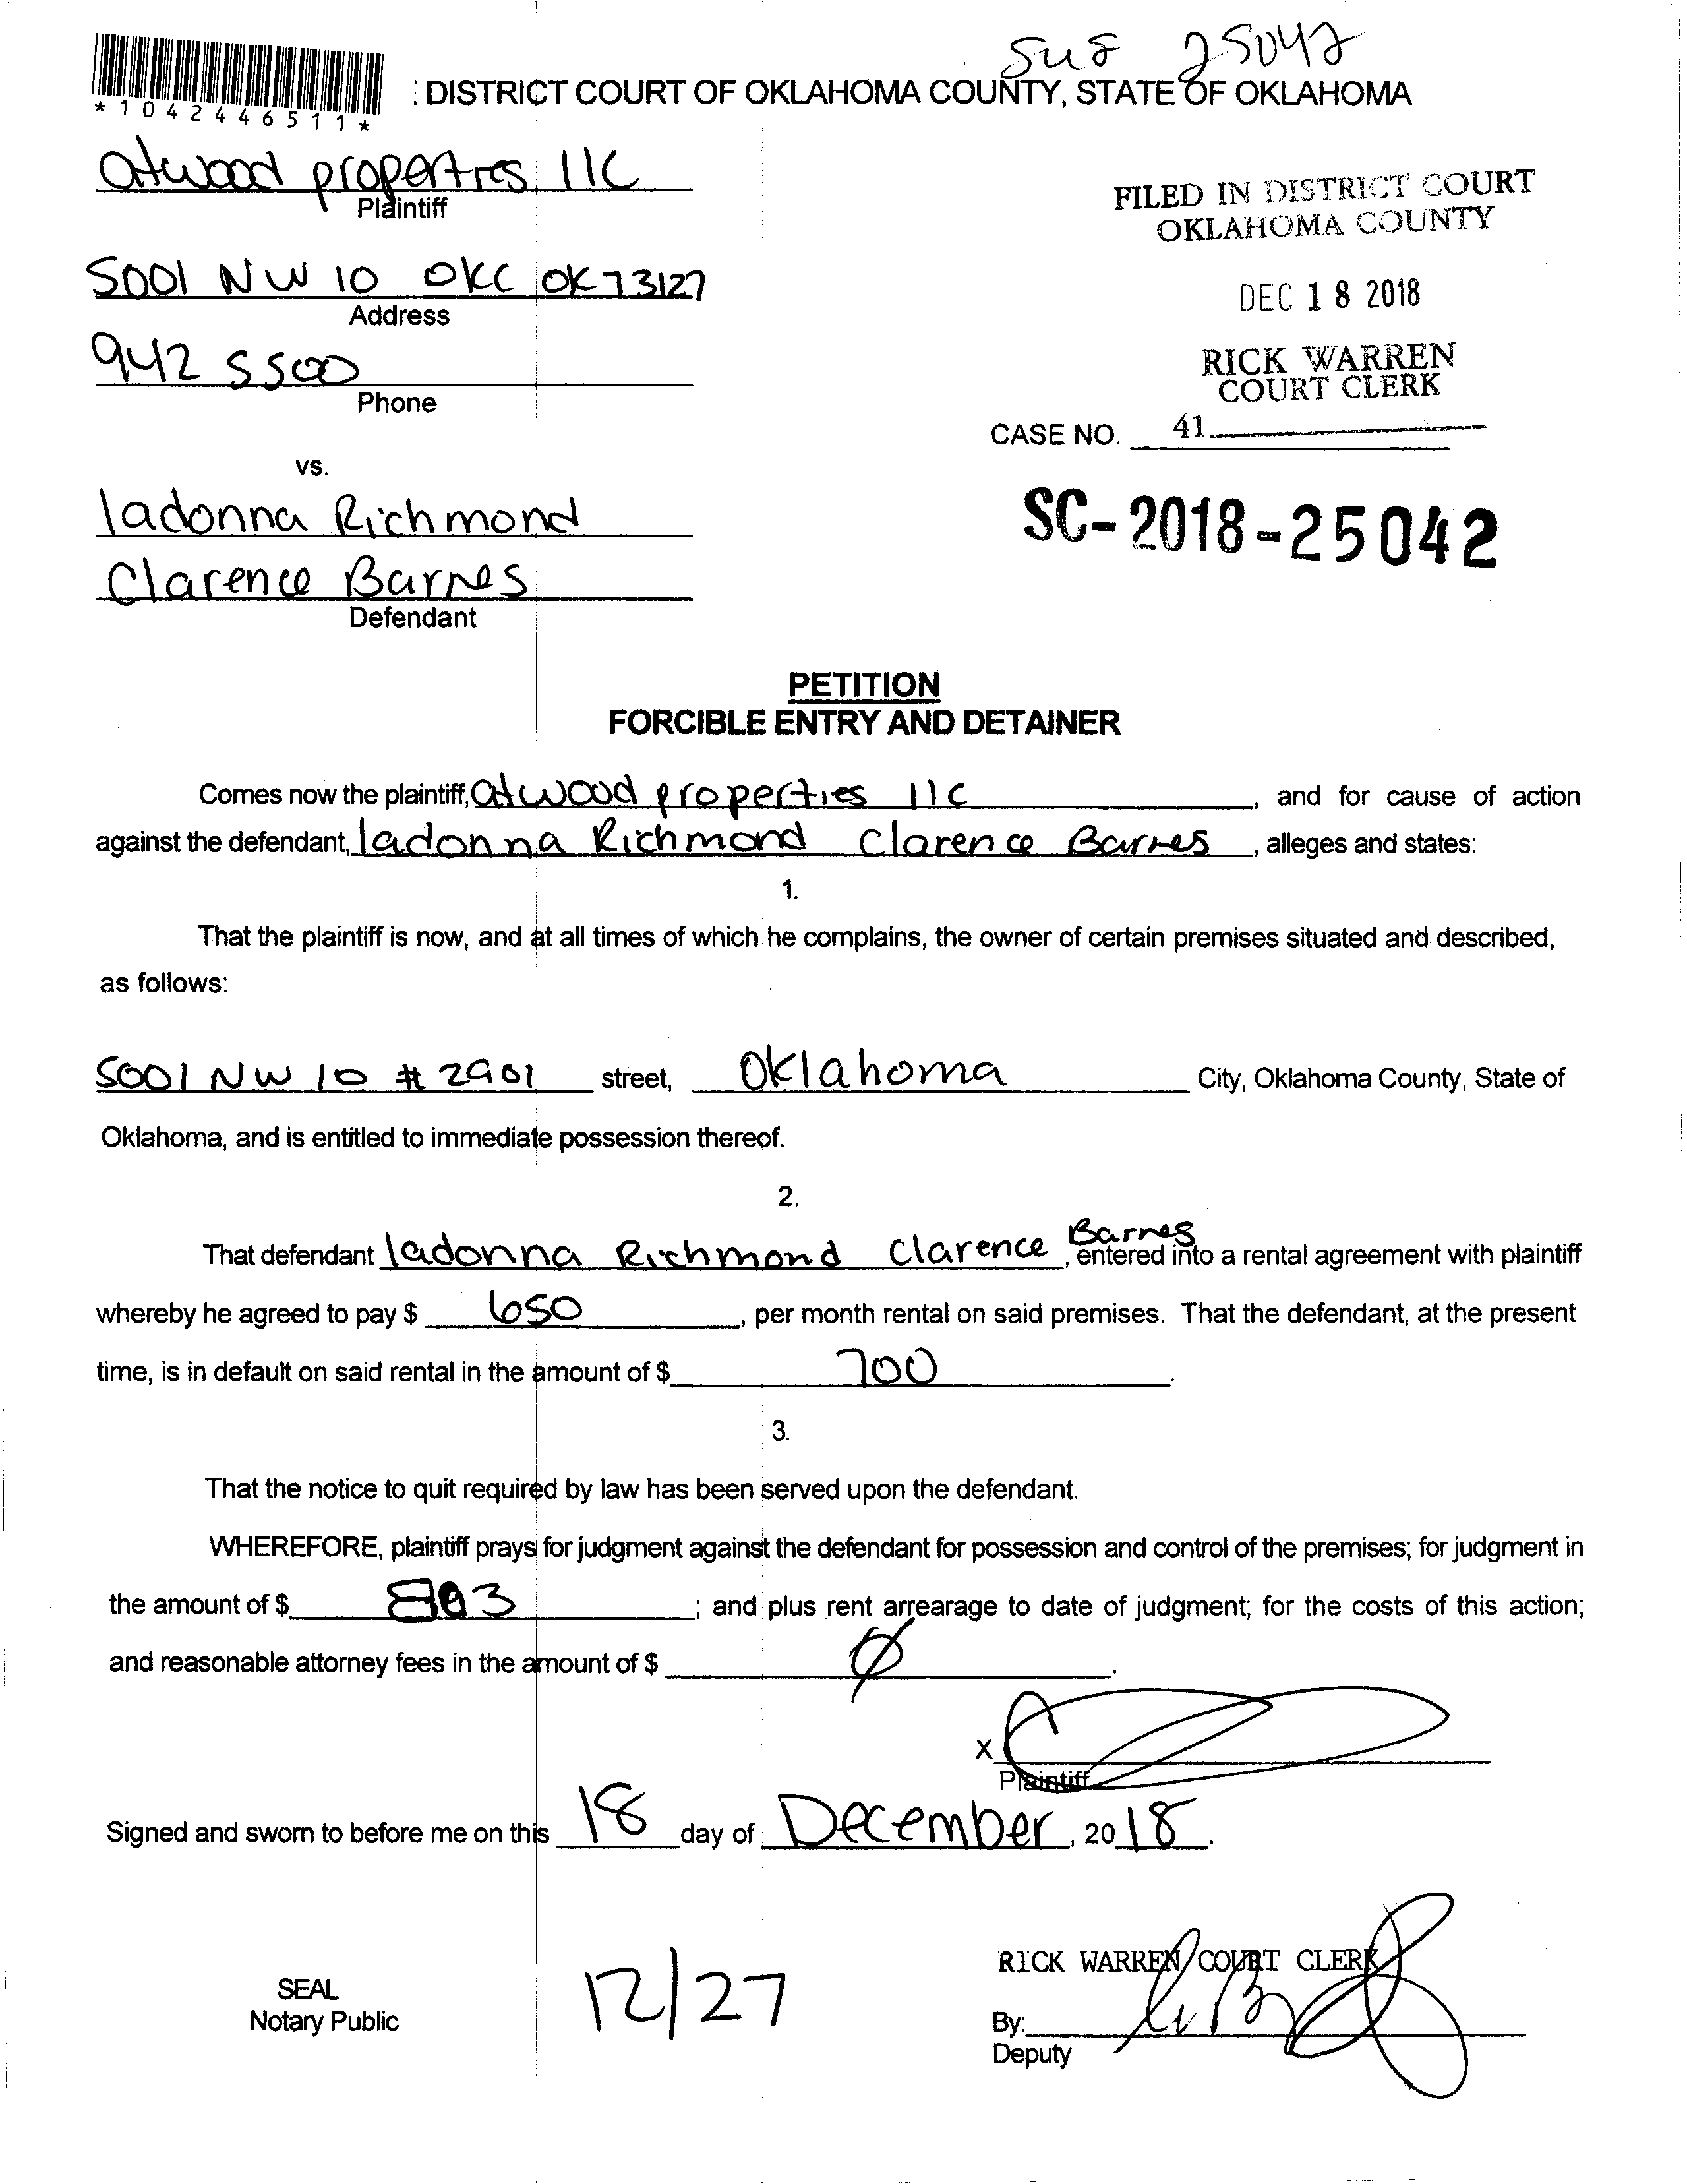 25042
: DISTRICT COURT OF OKLAHOMA COUNTY, STATE OF OKLAHOMA
*1042446511*
atwood properties llc
Plaintiff
FILED IN DISTRICT COURT
OKLAHOMA COUNTY
5001 NW 10 OKC OK 73127
Address
DEC 18 2018
942 5500
Phone
RICK WARREN
COURT CLERK
CASE NO. 41
vs.
ladonna Richmond
SC-2018-25042
Clarence Barnes
Defendant
PETITION
FORCIBLE ENTRY AND DETAINER
Comes now the plaintiff, atwood properties llc, and for cause of action
against the defendant, ladonna Richmond Clarence Barnes, alleges and states:
1.
That the plaintiff is now, and at all times of which he complains, the owner of certain premises situated and described,
as follows:
5001 NW 10 # 2901 street, Oklahoma City, Oklahoma County, State of
Oklahoma, and is entitled to immediate possession thereof.
2.
That defendant ladonna Richmond Clarence Barnes, entered into a rental agreement with plaintiff
whereby he agreed to pay $ 650, per month rental on said premises. That the defendant, at the present
time, is in default on said rental in the amount of $ 700.
3.
That the notice to quit required by law has been served upon the defendant.
WHEREFORE, plaintiff prays for judgment against the defendant for possession and control of the premises; for judgment in
the amount of $ 803; and plus rent arrearage to date of judgment; for the costs of this action;
and reasonable attorney fees in the amount of $ Ø.
X
Plaintiff
Signed and sworn to before me on this 18 day of December, 2018.
RICK WARREN COURT CLERK
SEAL
Notary Public
12/27
By:
Deputy